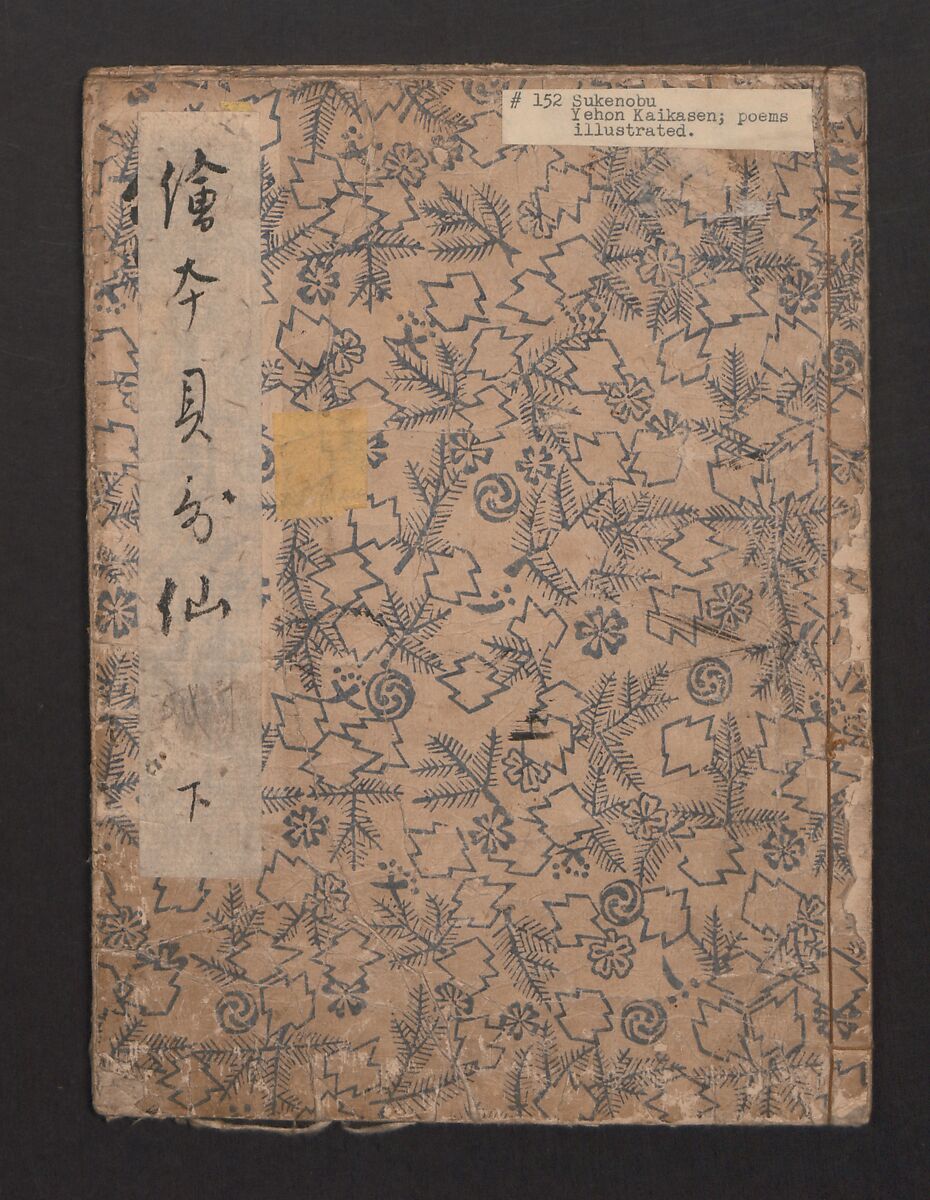 # 152 Sukenobu
Yehon Kaikasen; poems
illustrated.
繪本貝哥仙
下